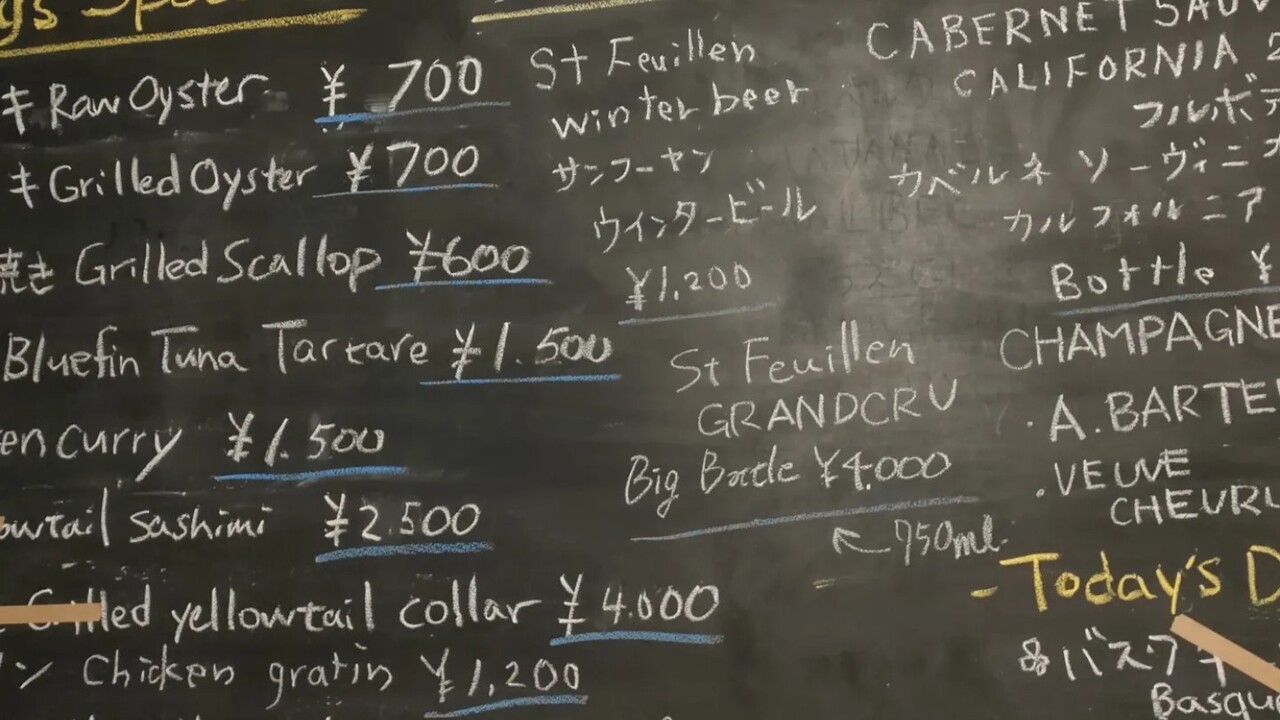 キ Raw Oyster ¥700
キ Grilled Oyster ¥700
焼き Grilled Scallop ¥600
Bluefin Tuna Tartare ¥1.500
en curry ¥1.500
owtail Sashimi ¥2.500
Grilled yellowtail collar ¥4.000
ン Chicken gratin ¥1,200
St Feuillen
winter beer
サンフーヤン
ウインタービール
¥1,200
St Feuillen
GRANDCRU
Big Bottle ¥4.000
750ml
CABERNET SAUV
CALIFORNIA 2
フルボデ
カベルネ ソーヴィニア
カルフォルニア
Bottle ¥
CHAMPAGNE
・A.BARTE
・VEUVE
CHEVRL
-Today's D
&バスク
Basqu